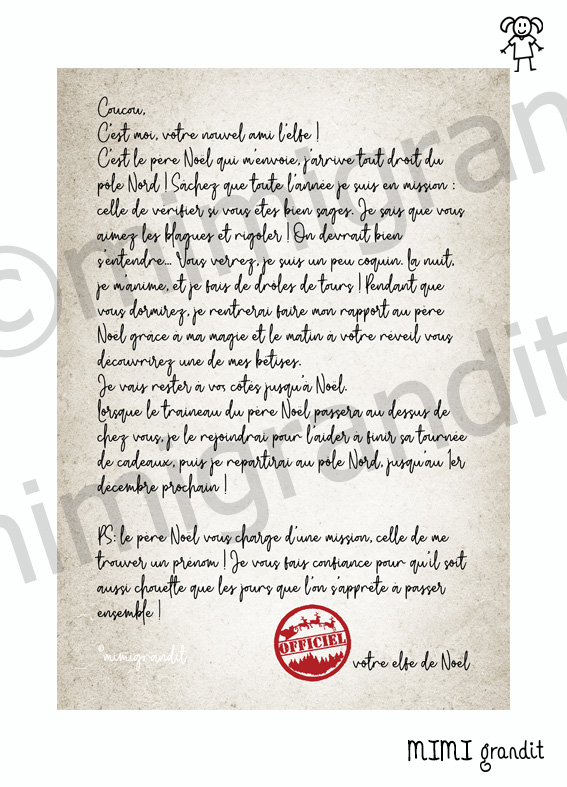 Coucou,
C'est moi, votre nouvel ami l'elfe !
C'est le père Noël qui m'envoie, j'arrive tout droit du
pôle Nord ! Sâchez que toute l'année je suis en mission :
celle de vérifier si vous êtes bien sages. Je sais que vous
aimez les blagues et rigoler ! On devrait bien
s'entendre... Vous verrez, je suis un peu coquin. La nuit,
je m'anime, et je fais de drôles de tours ! Pendant que
vous dormirez, je rentrerai faire mon rapport au père
Noël grâce à ma magie et le matin à votre réveil vous
découvrirez une de mes bêtises.
Je vais rester à vos côtés jusqu'à Noël.
lorsque le traineau du père Noël passera au dessus de
chez vous, je le rejoindrai pour l'aider à finir sa tournée
de cadeaux, puis je repartirai au pôle Nord, jusqu'au 1er
décembre prochain !
PS: le père Noël vous charge d'une mission, celle de me
trouver un prénom ! Je vous fais confiance pour qu'il soit
aussi chouette que les jours que l'on s'apprête à passer
ensemble !
OFFICIEL
votre elfe de Noël
©mimigrandit
©mimigrandit
mimigrandit
MIMI grandit